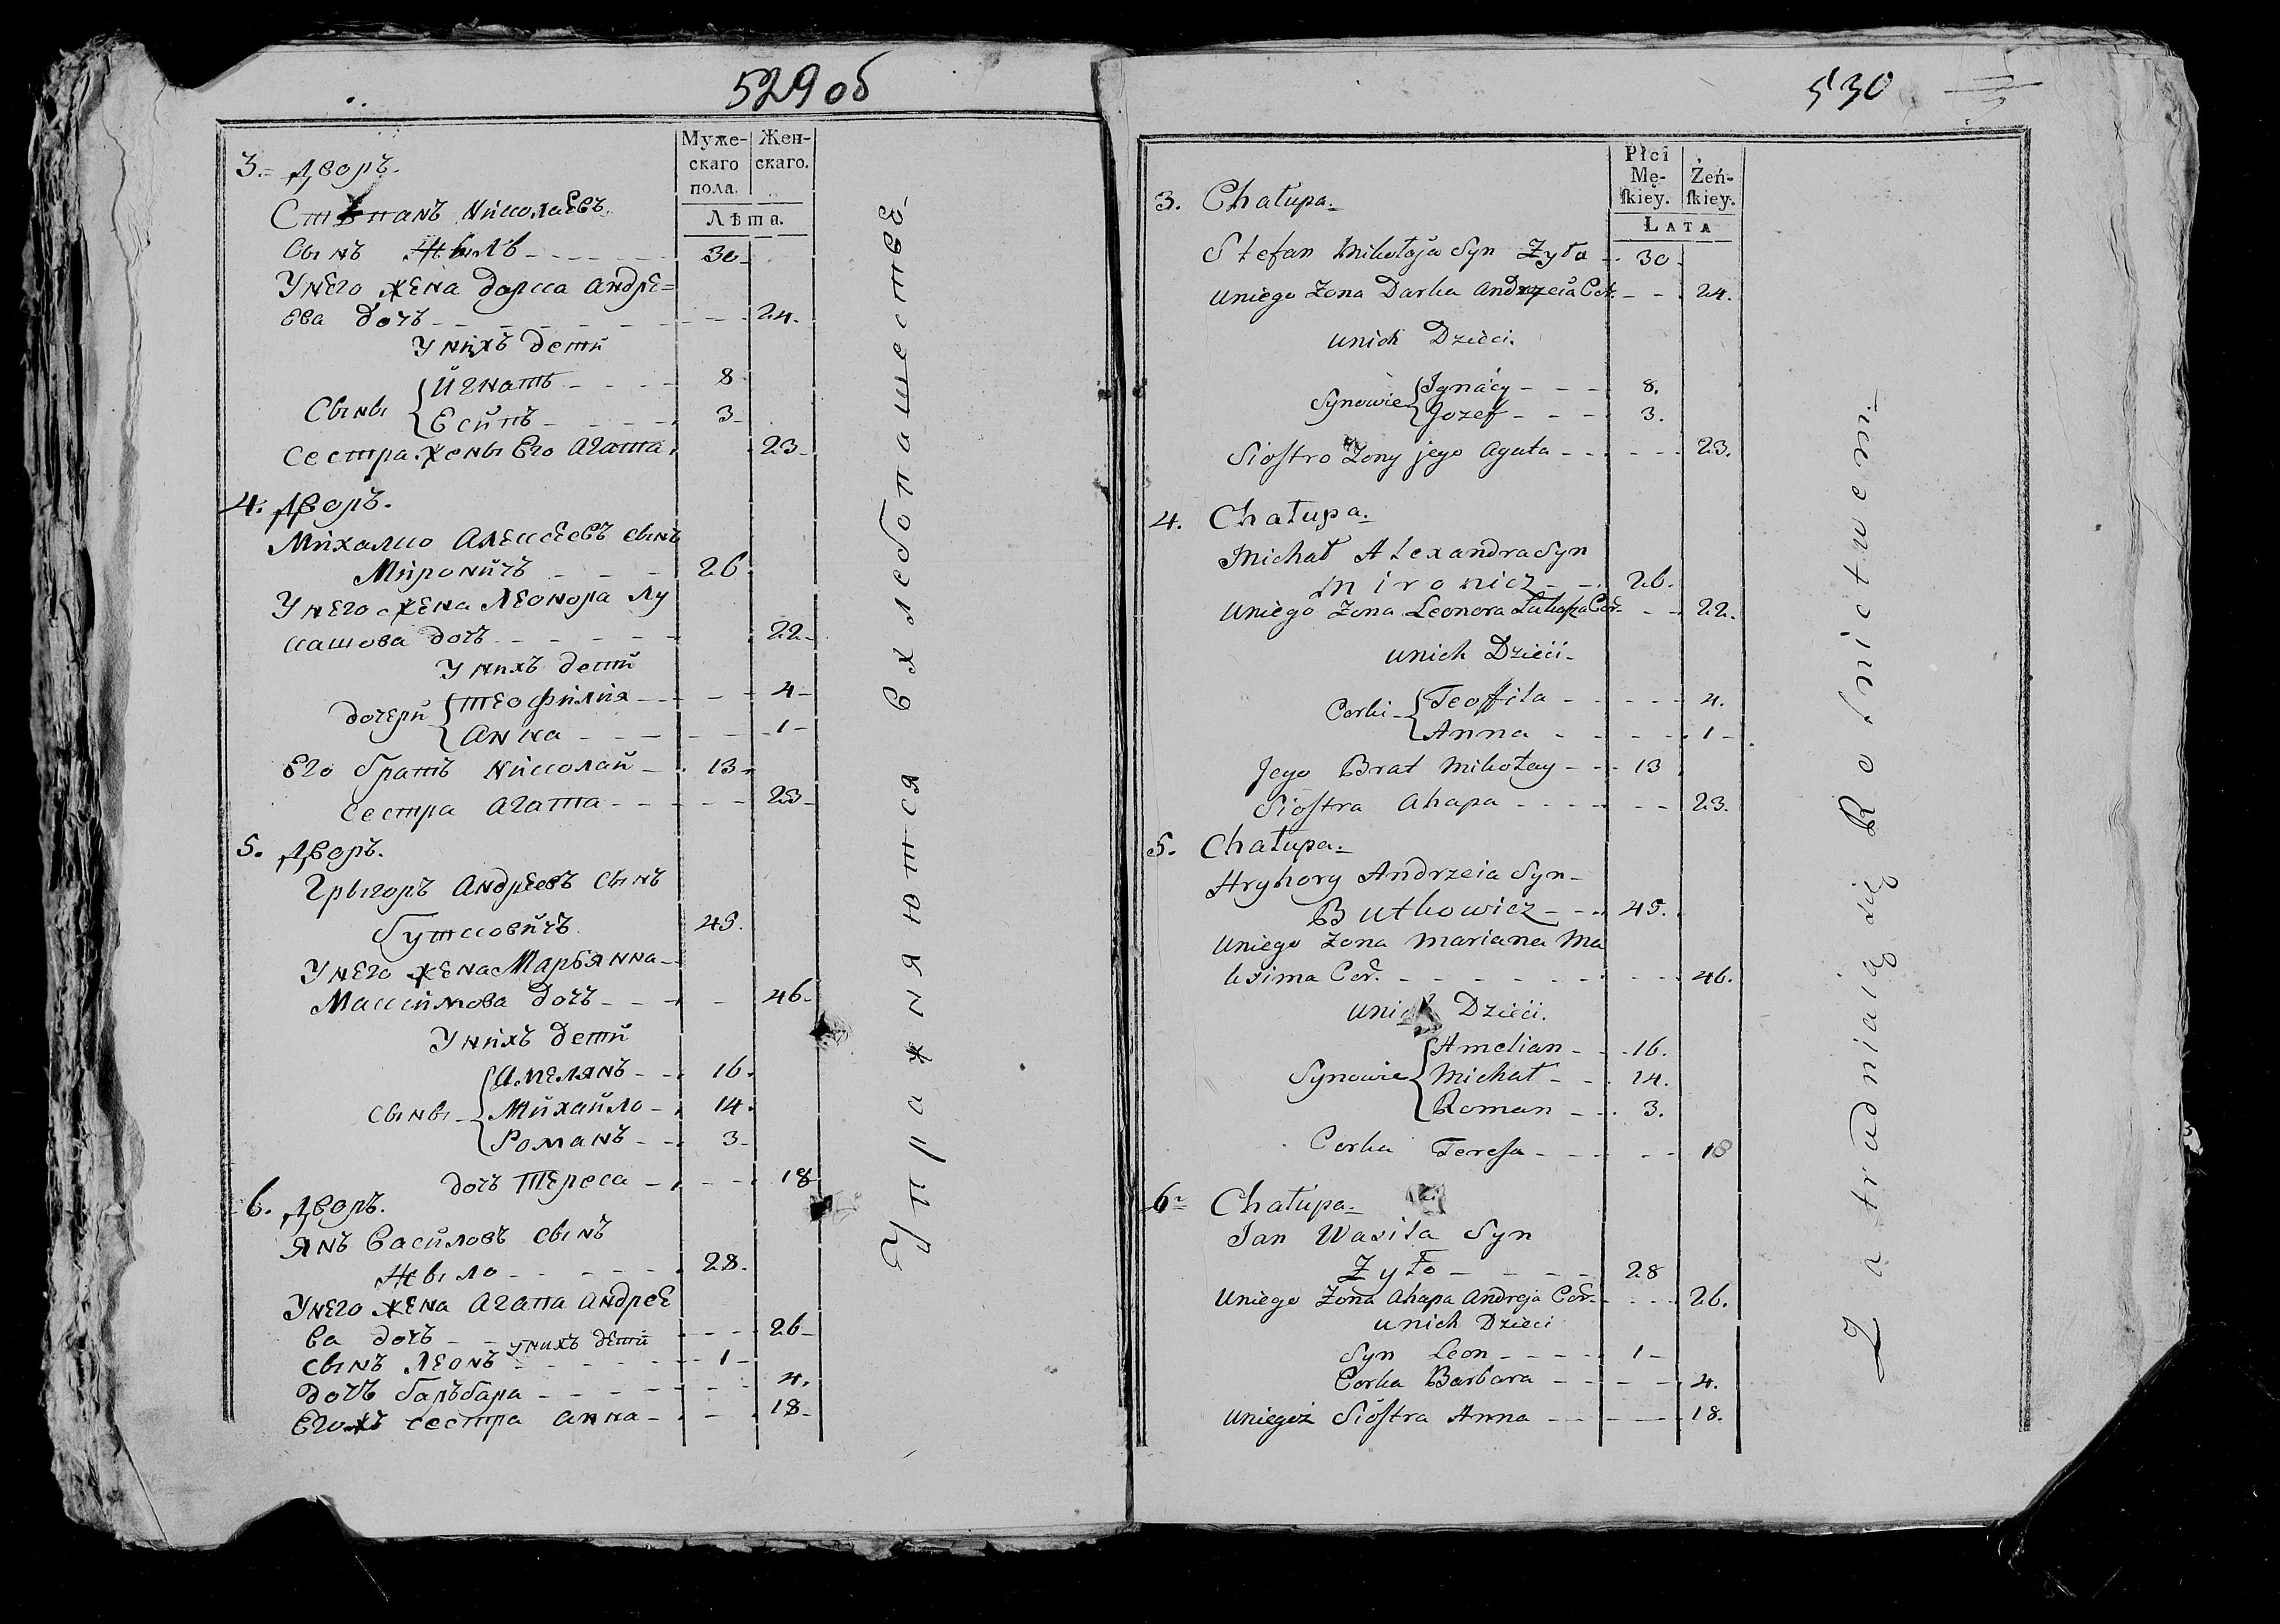 529 об
Муже-
скаго
пола.
Жен-
скаго.
Лѣта.
3. Дворъ.
Степанъ Николаевъ
сынъ Жылъ 30
У него жена Дарка Андре=
ева дочъ 24.
У нихъ дети
Сыны { Игнатъ 8
Есипъ 3
Сестра жены Его Агата 23
4. Дворъ.
Михалко Алексеевъ сынъ
Мироничъ 26.
У него жена Леонора Лу
кашова дочъ 22
У нихъ дети
дочери { Теофилия 4
Анна 1
Его братъ Николай 13
Сестра Агата 23
5. Дворъ.
Грыгоръ Андреевъ сынъ
Бутковичъ 45.
У него жена Марьянна
Максимова дочъ 46
У нихъ дети
сыны { Амелянъ 16.
Михайло 14.
Романъ 3
дочъ Тереса 18
6. Дворъ.
Янъ Василовъ сынъ
Жыло 28.
У него жена Агапа Андрее
ва дочъ 26
У нихъ дети
сынъ Леонъ 1
дочъ Барьбара 4.
Егожъ сестра Анна 18
Упражняются в хлебопашестве
530
Płci
Mę-
ſkiey.
Żeń-
ſkiey.
Lata
3. Chałupa.
Stefan Mikołaja Syn Zyło 30
uniego Zona Darka Andrzeia Cor. 24.
unich Dzieci.
Synowie { Ignacy 8.
Jozef 3.
Sioſtra Zony jego Agata 23.
4. Chałupa.
Michał Alexandra Syn
Mironicz 26.
uniego Zona Leonora Łukasza Cor. 22.
unich Dzieci
Corki { Teoffila 4.
Anna 1
Jego Brat Mikołay 13
Sioſtra Ahapa 23.
5. Chałupa.
Hryhory Andrzeia Syn
Butkowicz 45.
uniego Zona Mariana Ma
ksima Cor. 46.
unich Dzieci.
Synowie { Amelian 16.
Michał 14.
Roman 3.
Corka Tereſa 18
6. Chałupa.
Jan Wasila Syn
Zyło 28
uniego Zona Ahapa Andreja Cor. 26.
unich Dzieci
Syn Leon 1
Corka Barbara 4.
uniegoż Sioſtra Anna 18.
Zatrudniaią się Rolnictwem.